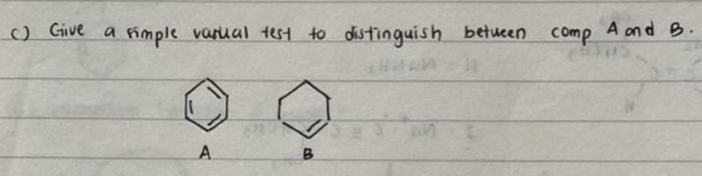 c) Give a simple varual test to distinguish between comp A and B.
A B